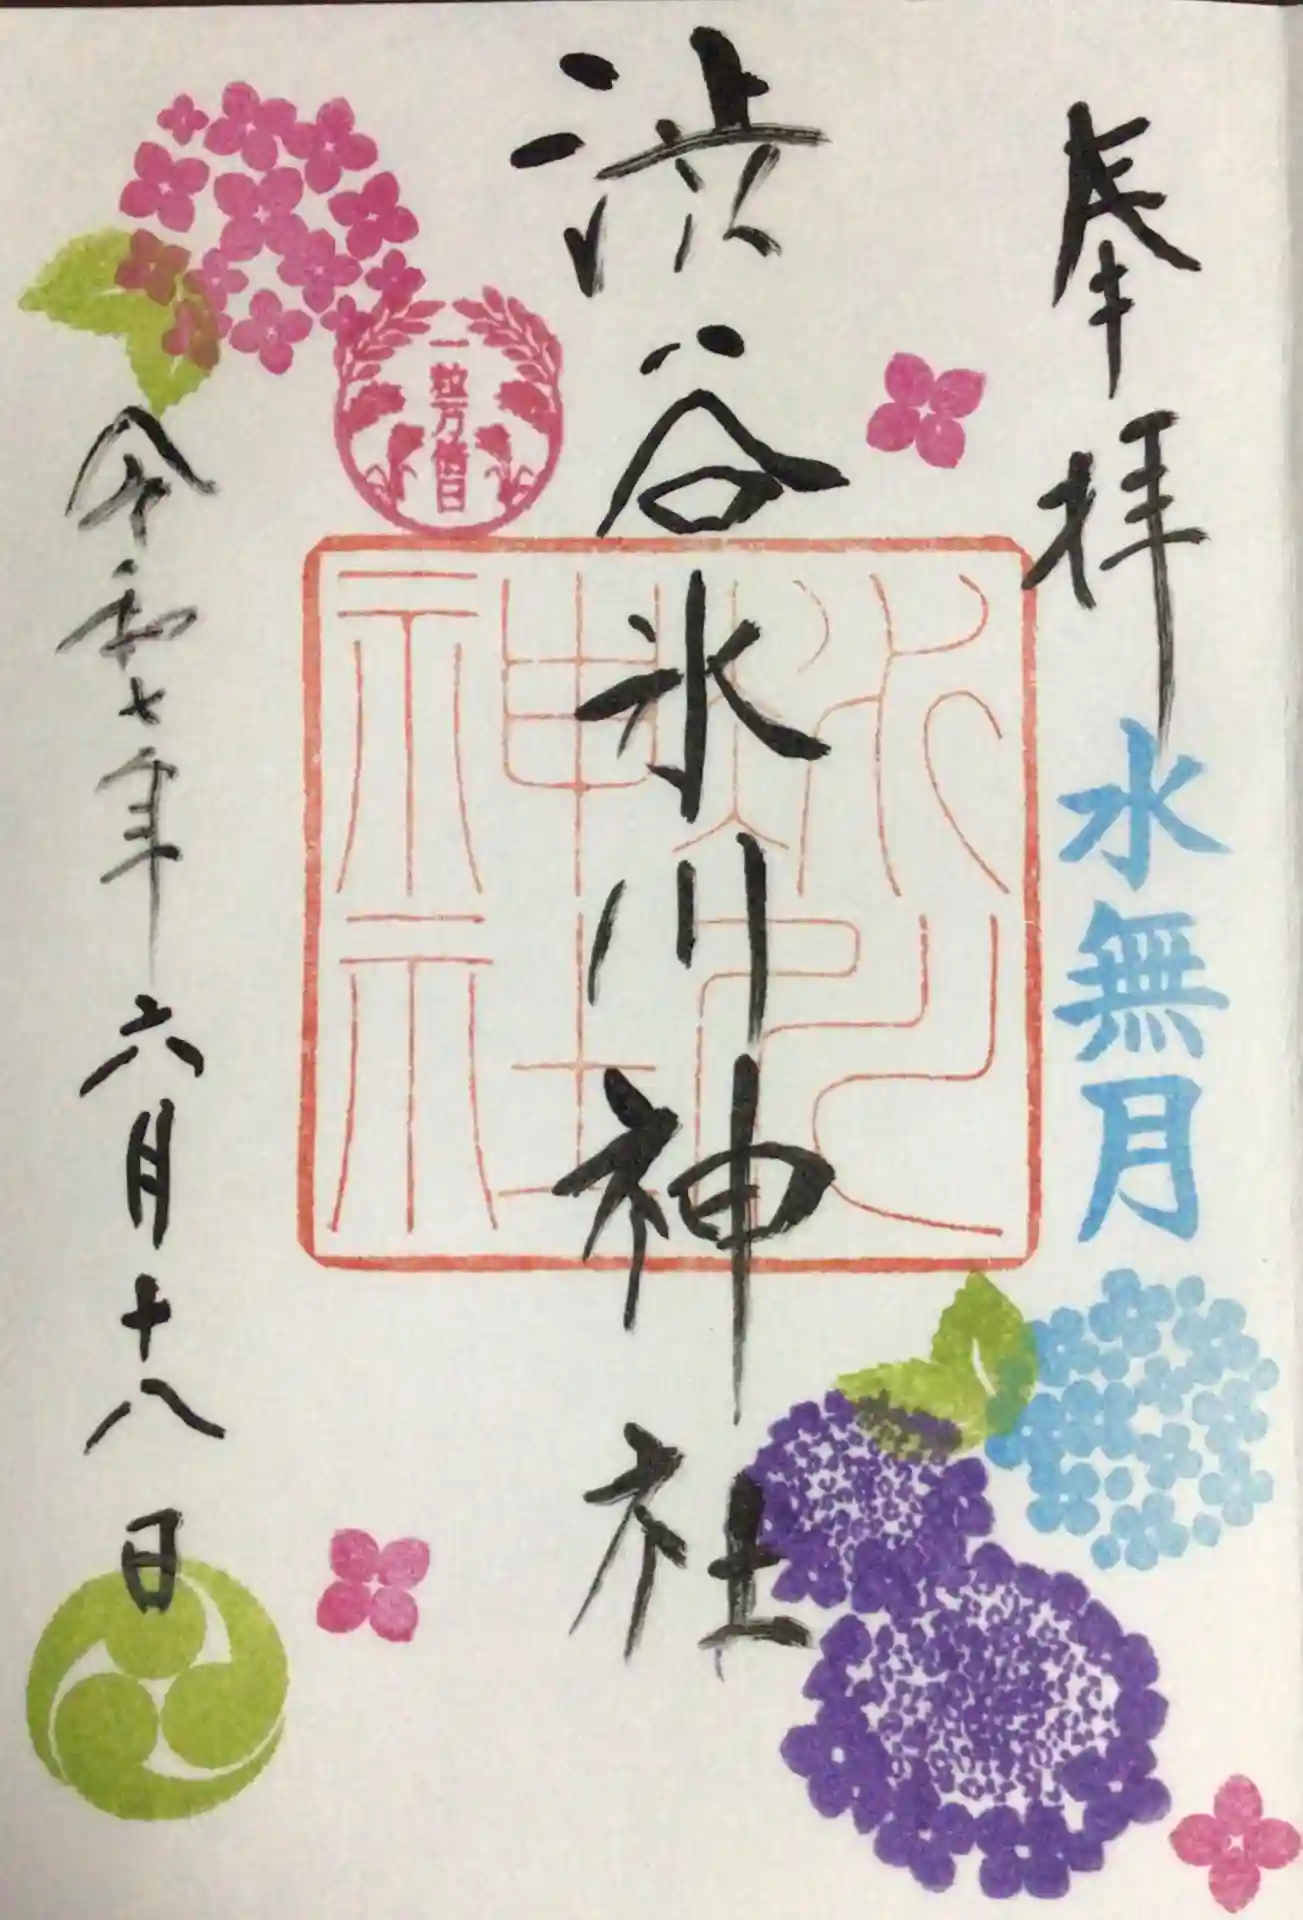 奉拝
水無月
渋谷氷川神社
氷川
神社
一粒万倍日
令和七年六月十八日